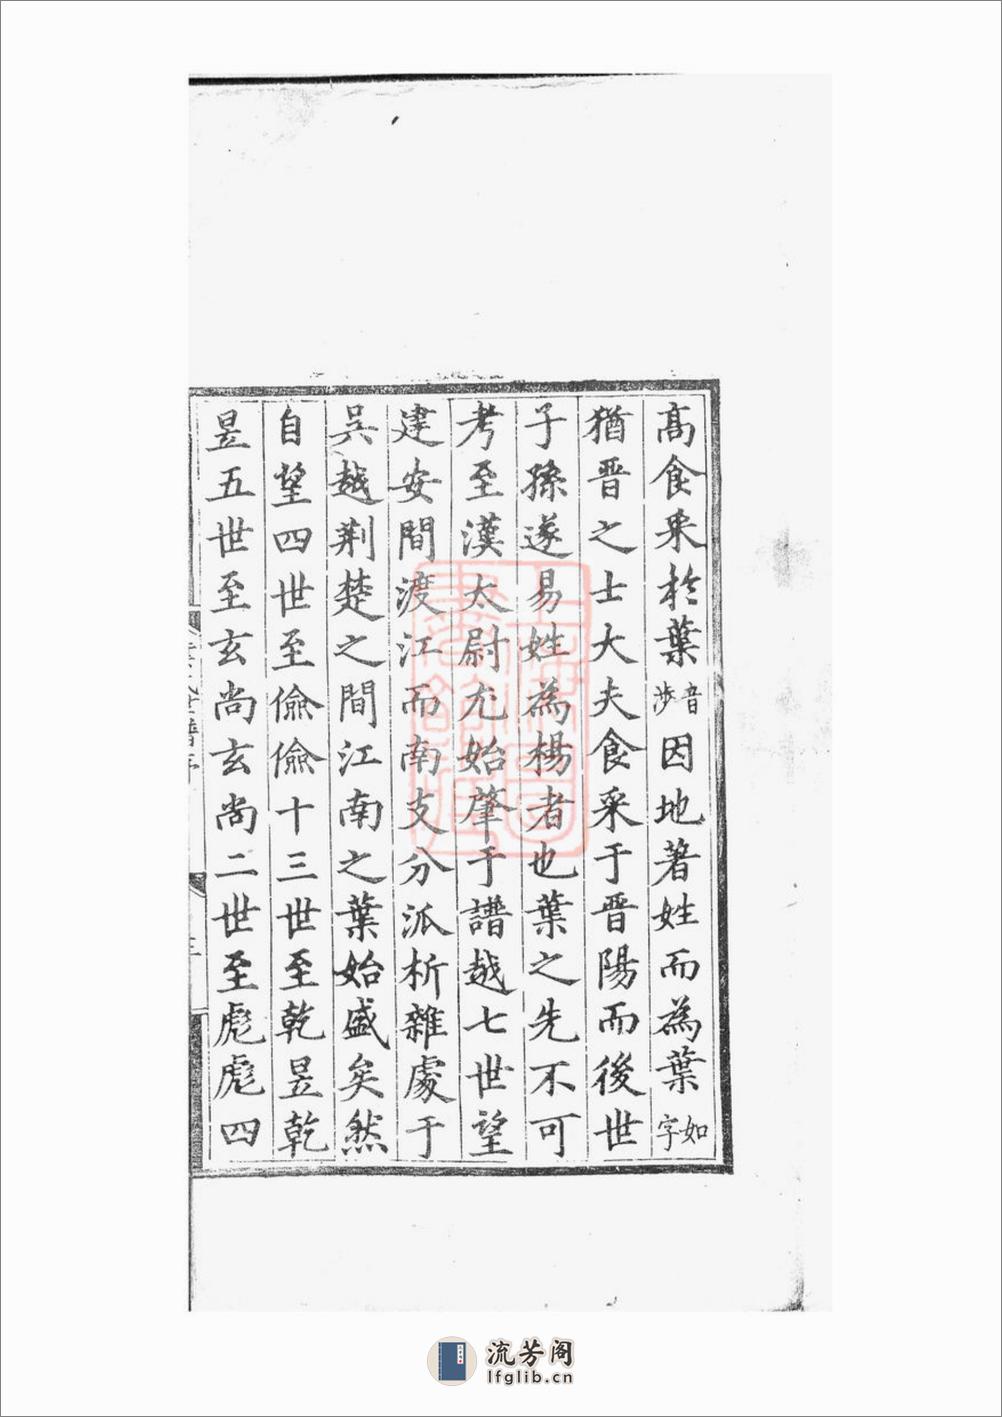 高食采於葉音涉因地著姓而為葉如字
猶晉之士大夫食采于晉陽而後世
子孫遂易姓為楊者也葉之先不可
考至漢太尉尤始肇于譜越七世望
建安間渡江而南支分派析雜處于
吳越荆楚之間江南之葉始盛矣然
自望四世至儉儉十三世至乾昱乾
昱五世至玄尚玄尚二世至彪彪四
流芳阁
lfglib.cn